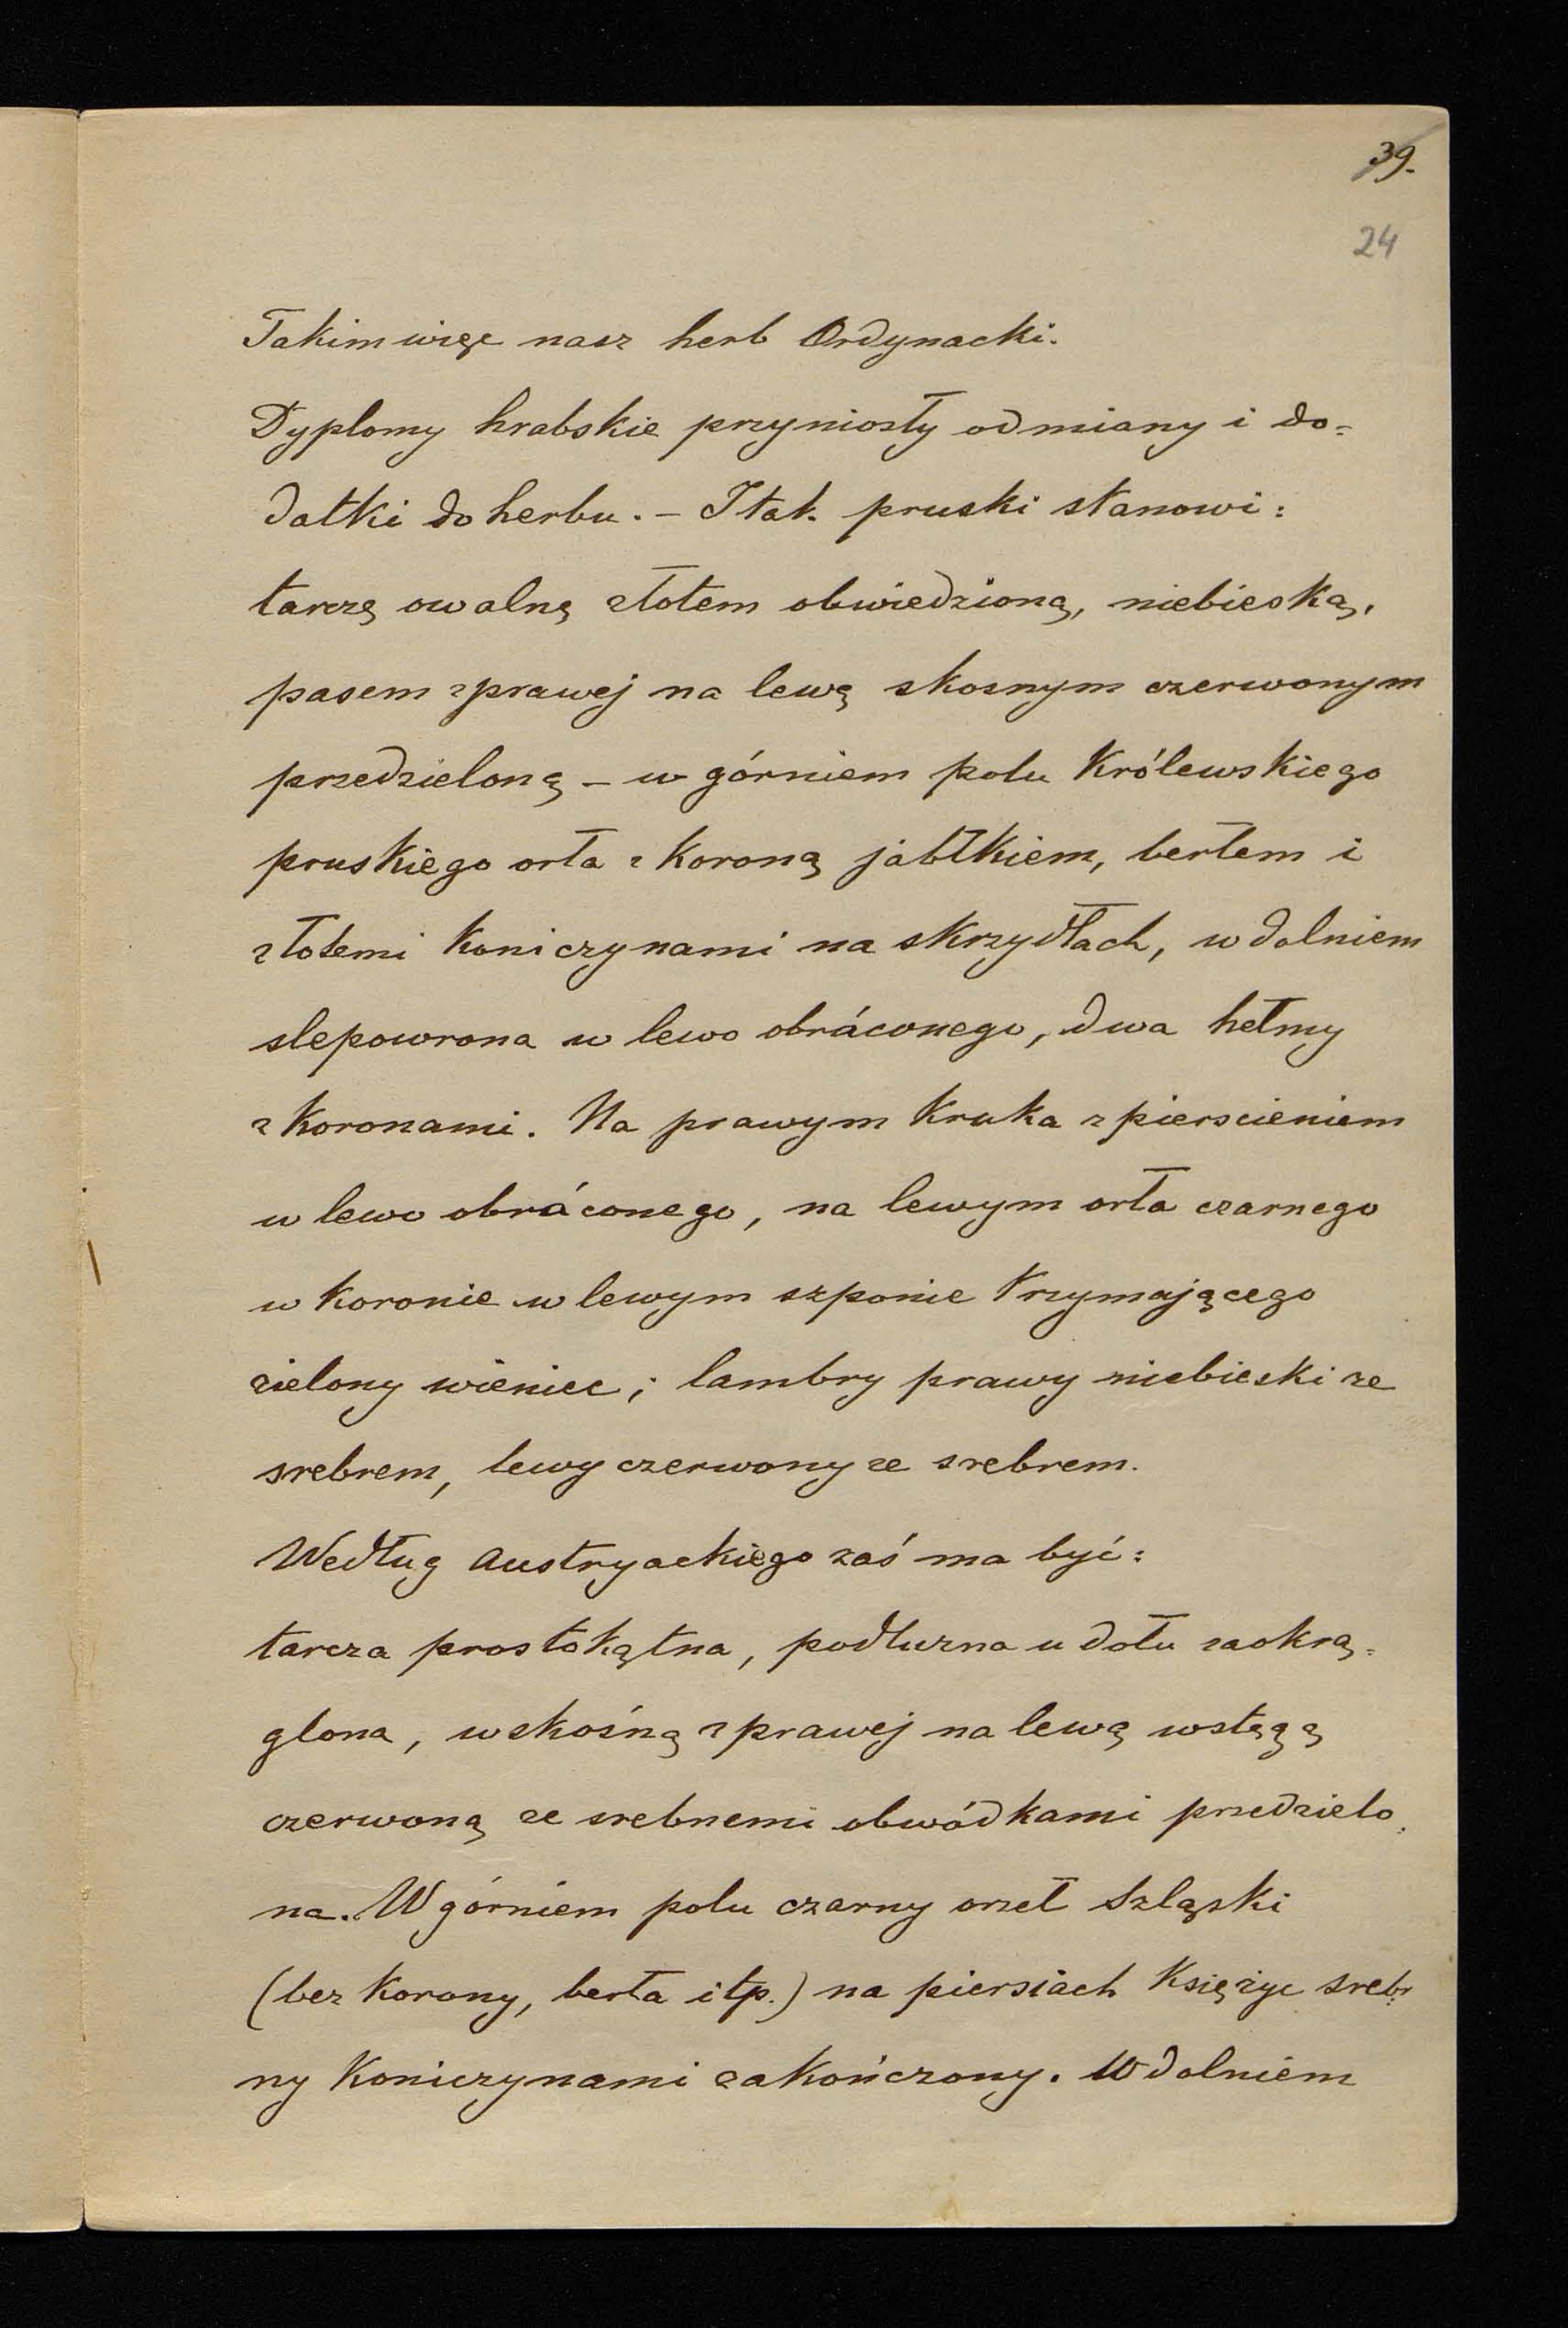 39.
24
Takim więc nasz herb Ordynacki.
Dyplomy hrabskie przyniosły odmiany i do=
datki do herbu. – I tak pruski stanowi:
tarczę owalną złotem obwiedzioną, niebieską,
pasem z prawej na lewą skosnym czerwonym
przedzieloną – w górniem polu Królewskiego
pruskiego orła z Koroną jabłkiem, berłem i
złotemi Koniczynami na skrzydłach, w dolniem
slepowrona w lewo obráconego, dwa hełmy
z Koronami. Na prawym Kruka z pierscieniem
w lewo obráconego, na lewym orła czarnego
w Koronie w lewym szponie trzymającego
zielony wieniec; lambry prawy niebieski ze
srebrem, lewy czerwony ze srebrem.
Według Austryackiego zaś ma być:
tarcza prostokątna, podłużna u dołu zaokrą=
glona, wskośną z prawej na lewą wstęgą
czerwoną ze srebnemi obwódkami przedzielo=
na. W górniem polu czarny orzeł Szląski
(bez Korony, berła itp.) na piersiach Księżyc sreb=
ny Koniczynami zakończony. W dolniem